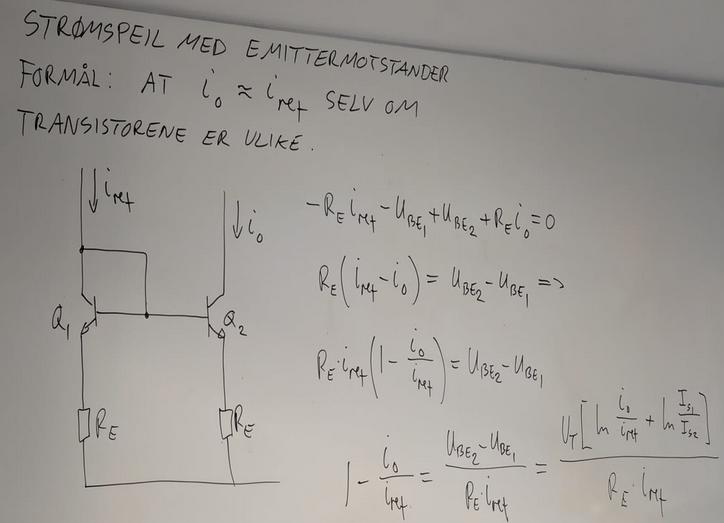 STRØMSPEIL MED EMITTERMOTSTANDER
FORMÅL: AT i_o ≈ i_ref SELV OM
TRANSISTORENE ER ULIKE.
i_ref
i_o
Q_1
Q_2
R_E
R_E
-R_E i_ref - U_BE1 + U_BE2 + R_E i_o = 0
R_E (i_ref - i_o) = U_BE2 - U_BE1 =>
R_E · i_ref (1 - i_o / i_ref) = U_BE2 - U_BE1
1 - i_o / i_ref = (U_BE2 - U_BE1) / (R_E · i_ref) = U_T [ln i_o / i_ref + ln I_S1 / I_S2] / (R_E · i_ref)